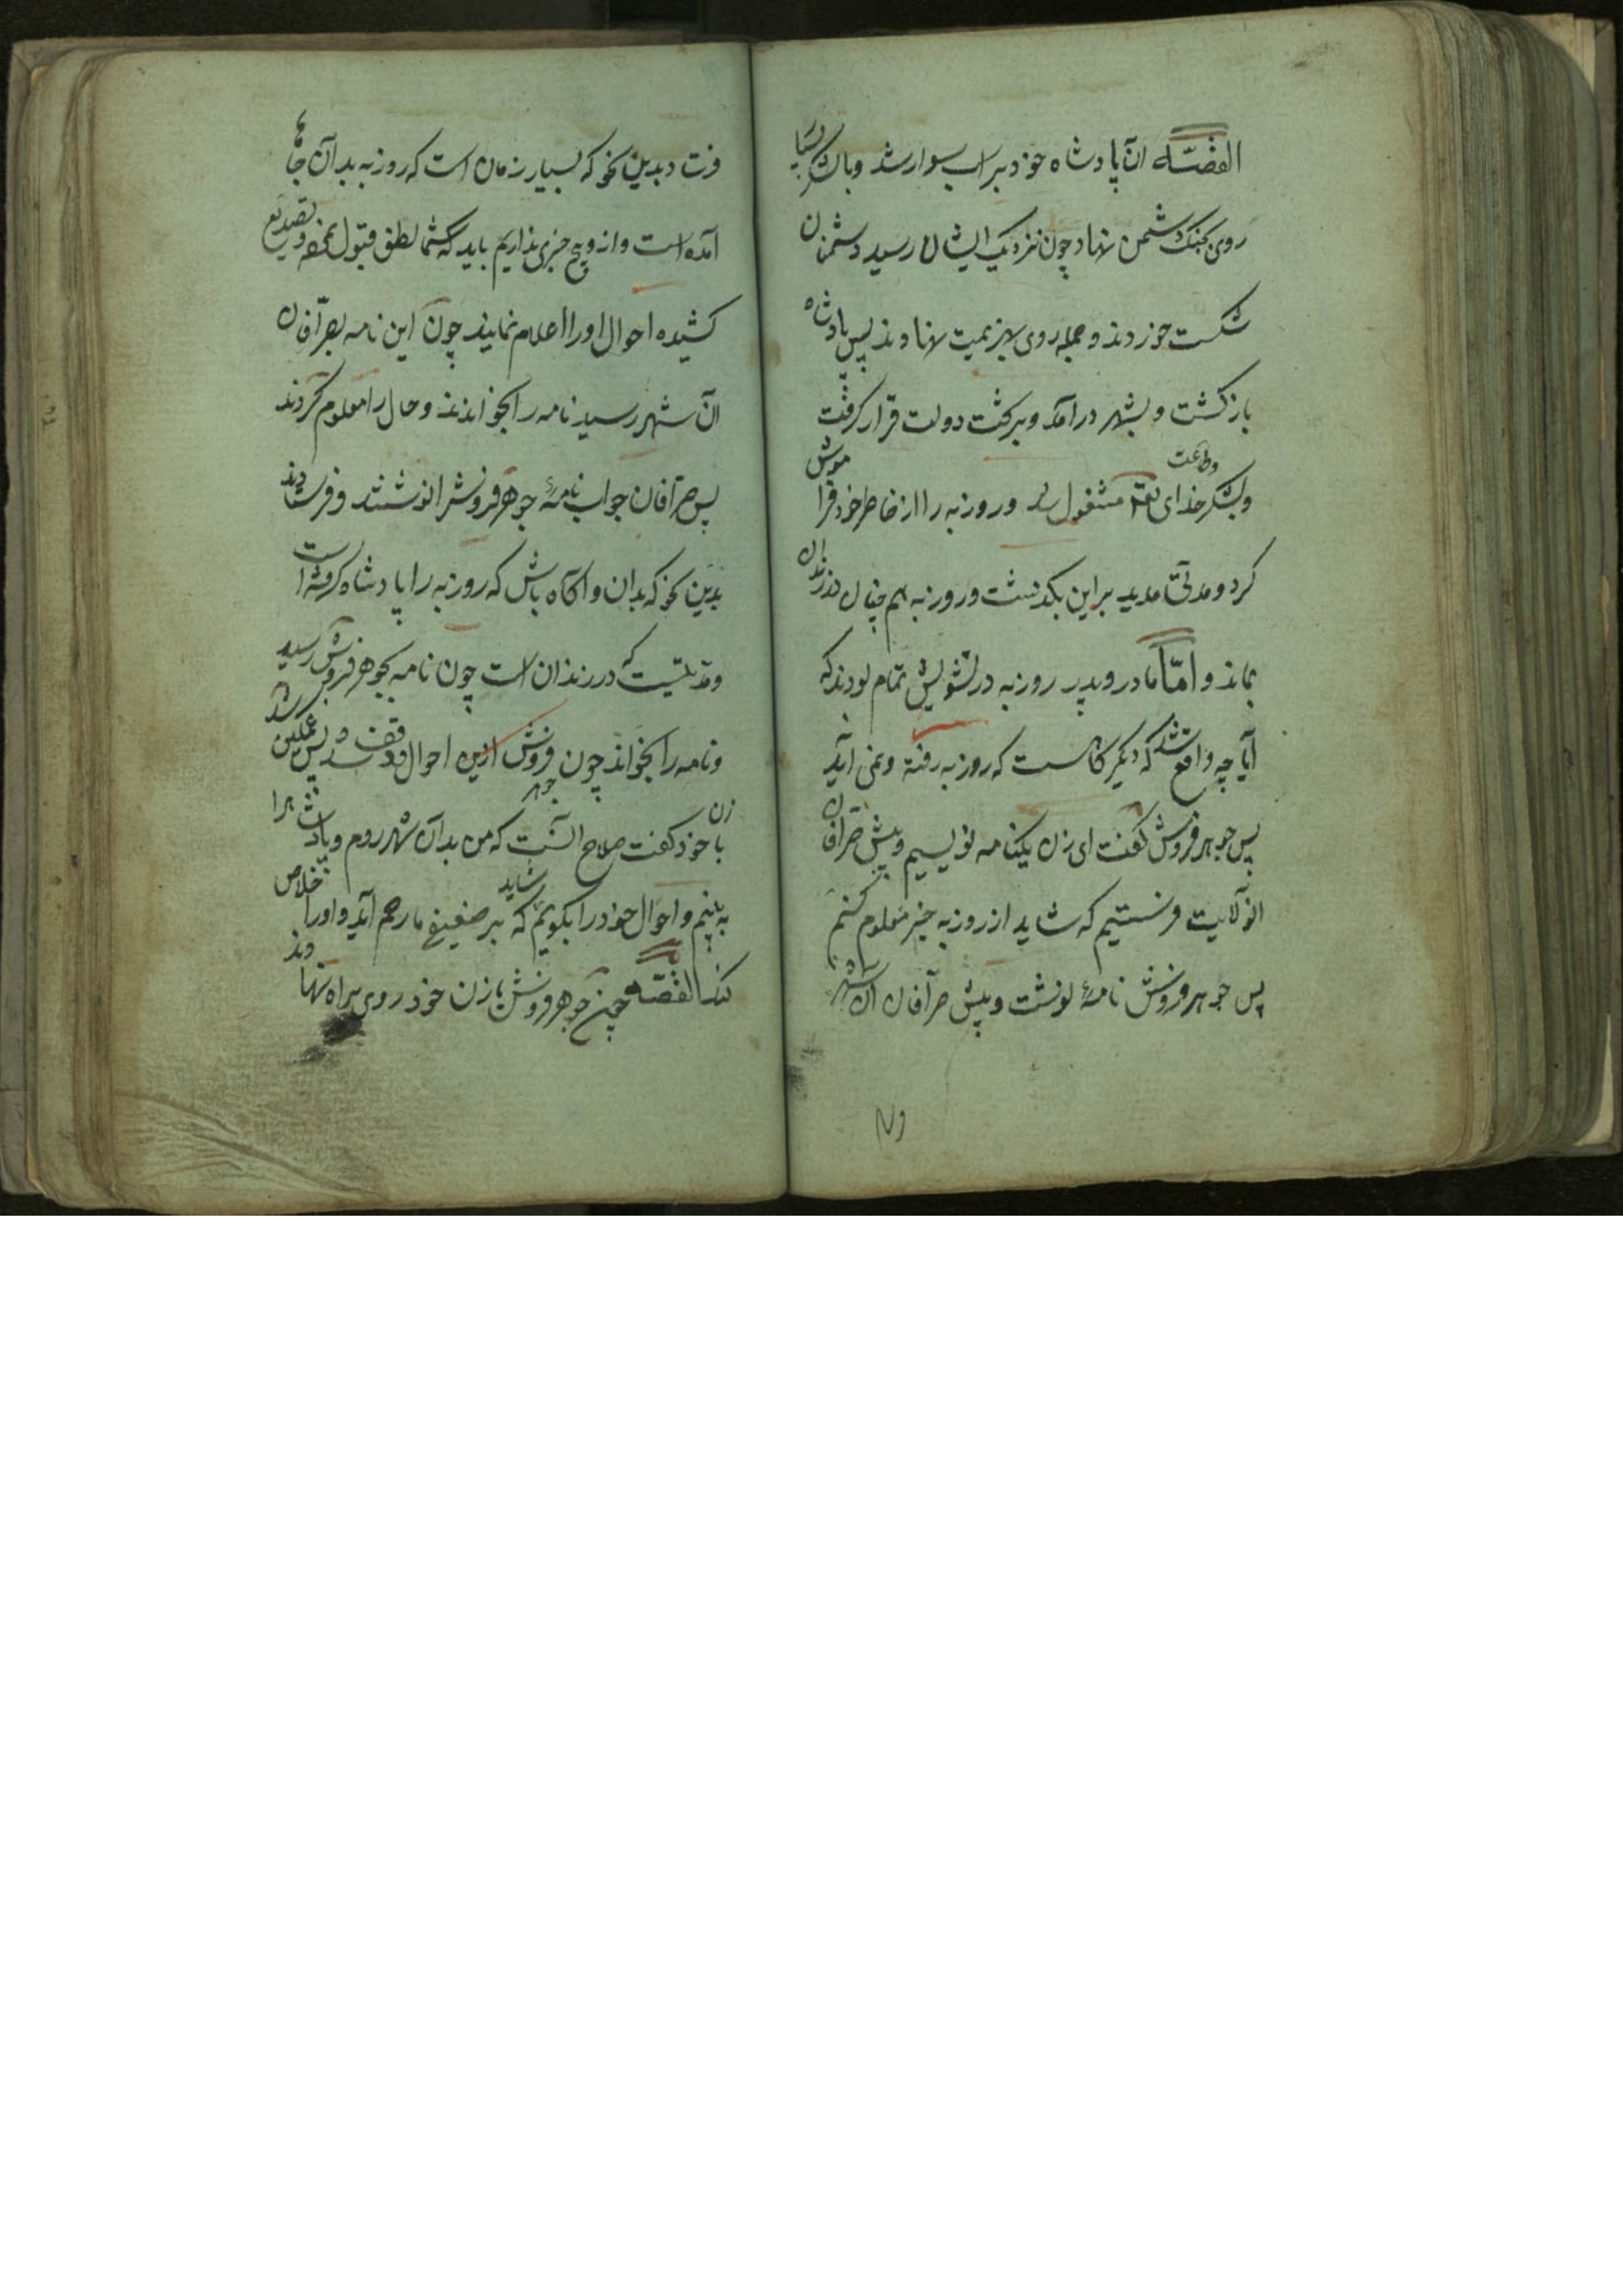 القصّه انّ پادشاه خود بر اسب سوار شد و با لشکر بسیار
روی بجنک دشمن نهاد چون نزدیک ایشان رسید دشمنان
شکست خوردند و جمله روی بهزیمت نهادند پس پادشاه
بازکشت و بشهر درآمد و بر تخت دولت قرار کرفت
و بشکر خدای تعالی و طاعت مشغول شد و روزبه را از خاطر خود فراموش
کرد و مدتی مدید بر این بکذشت و روزبه هم چنان در زندان
بماند و امّا مادر و پدر روزبه در تشویش تمام بودند که
آیا چه واقع شد که دیکر کاست که روزبه رفته و نمی آید
پس جوهر فروش کفت ای زن یکنامه نویسیم و پیش صرّافان
انولایت فرستیم که شاید از روزبه خبر معلوم کنیم
پس جوهر فروش نامهٔ نوشت و پیش صرّافان آن شهر
فرستاد بدین نحو که بسیار زمان است که روزبه بدآن جاها
آمده است و از و هیچ خبری نداریم باید که شما لطف قبول نموده و تصدیع
کشیده احوال او را اعلام نمایند چون این نامه بصرّافان
آن شهر رسید نامه را بخواندند و حال را معلوم کردند
پس صرّافان جواب نامهٔ جوهر فروش را نوشتند و فرستادند
بدین نحو که بدان و آکاه باش که روزبه را پادشاه کرفته است
و مدتیست که در زندان است چون نامه بجوهر فروش رسید
و نامه را بخواند چون جوهر فروش ازین احوال واقف شد پس غمکین شد
با زن خود کفت صلاح آنست که من بدآن شهر روم و پادشاه را
به بینم و احوال خود را بکویم که شاید بر ضعیفی ما رحم آید و او را خلاص
کند القصّه چون جوهر فروش با زن خود روی براه نهادند